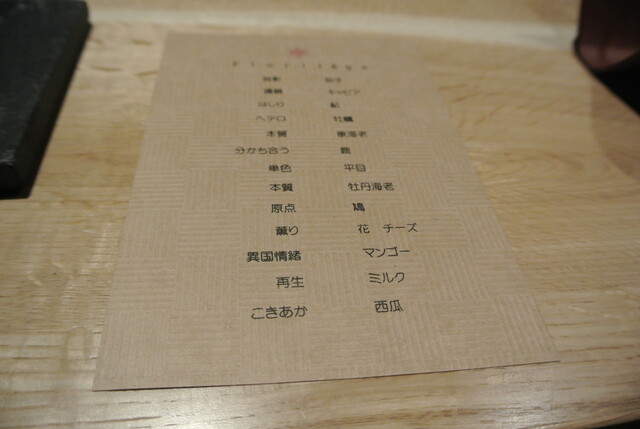 Florilège
柚子
連鎖 キャビア
はしり 鮎
ヘテロ 牡蠣
本質 車海老
分かち合う 鹿
単色 平目
本質 牡丹海老
原点 鳩
薫り 花 チーズ
異国情緒 マンゴー
再生 ミルク
こきあか 西瓜